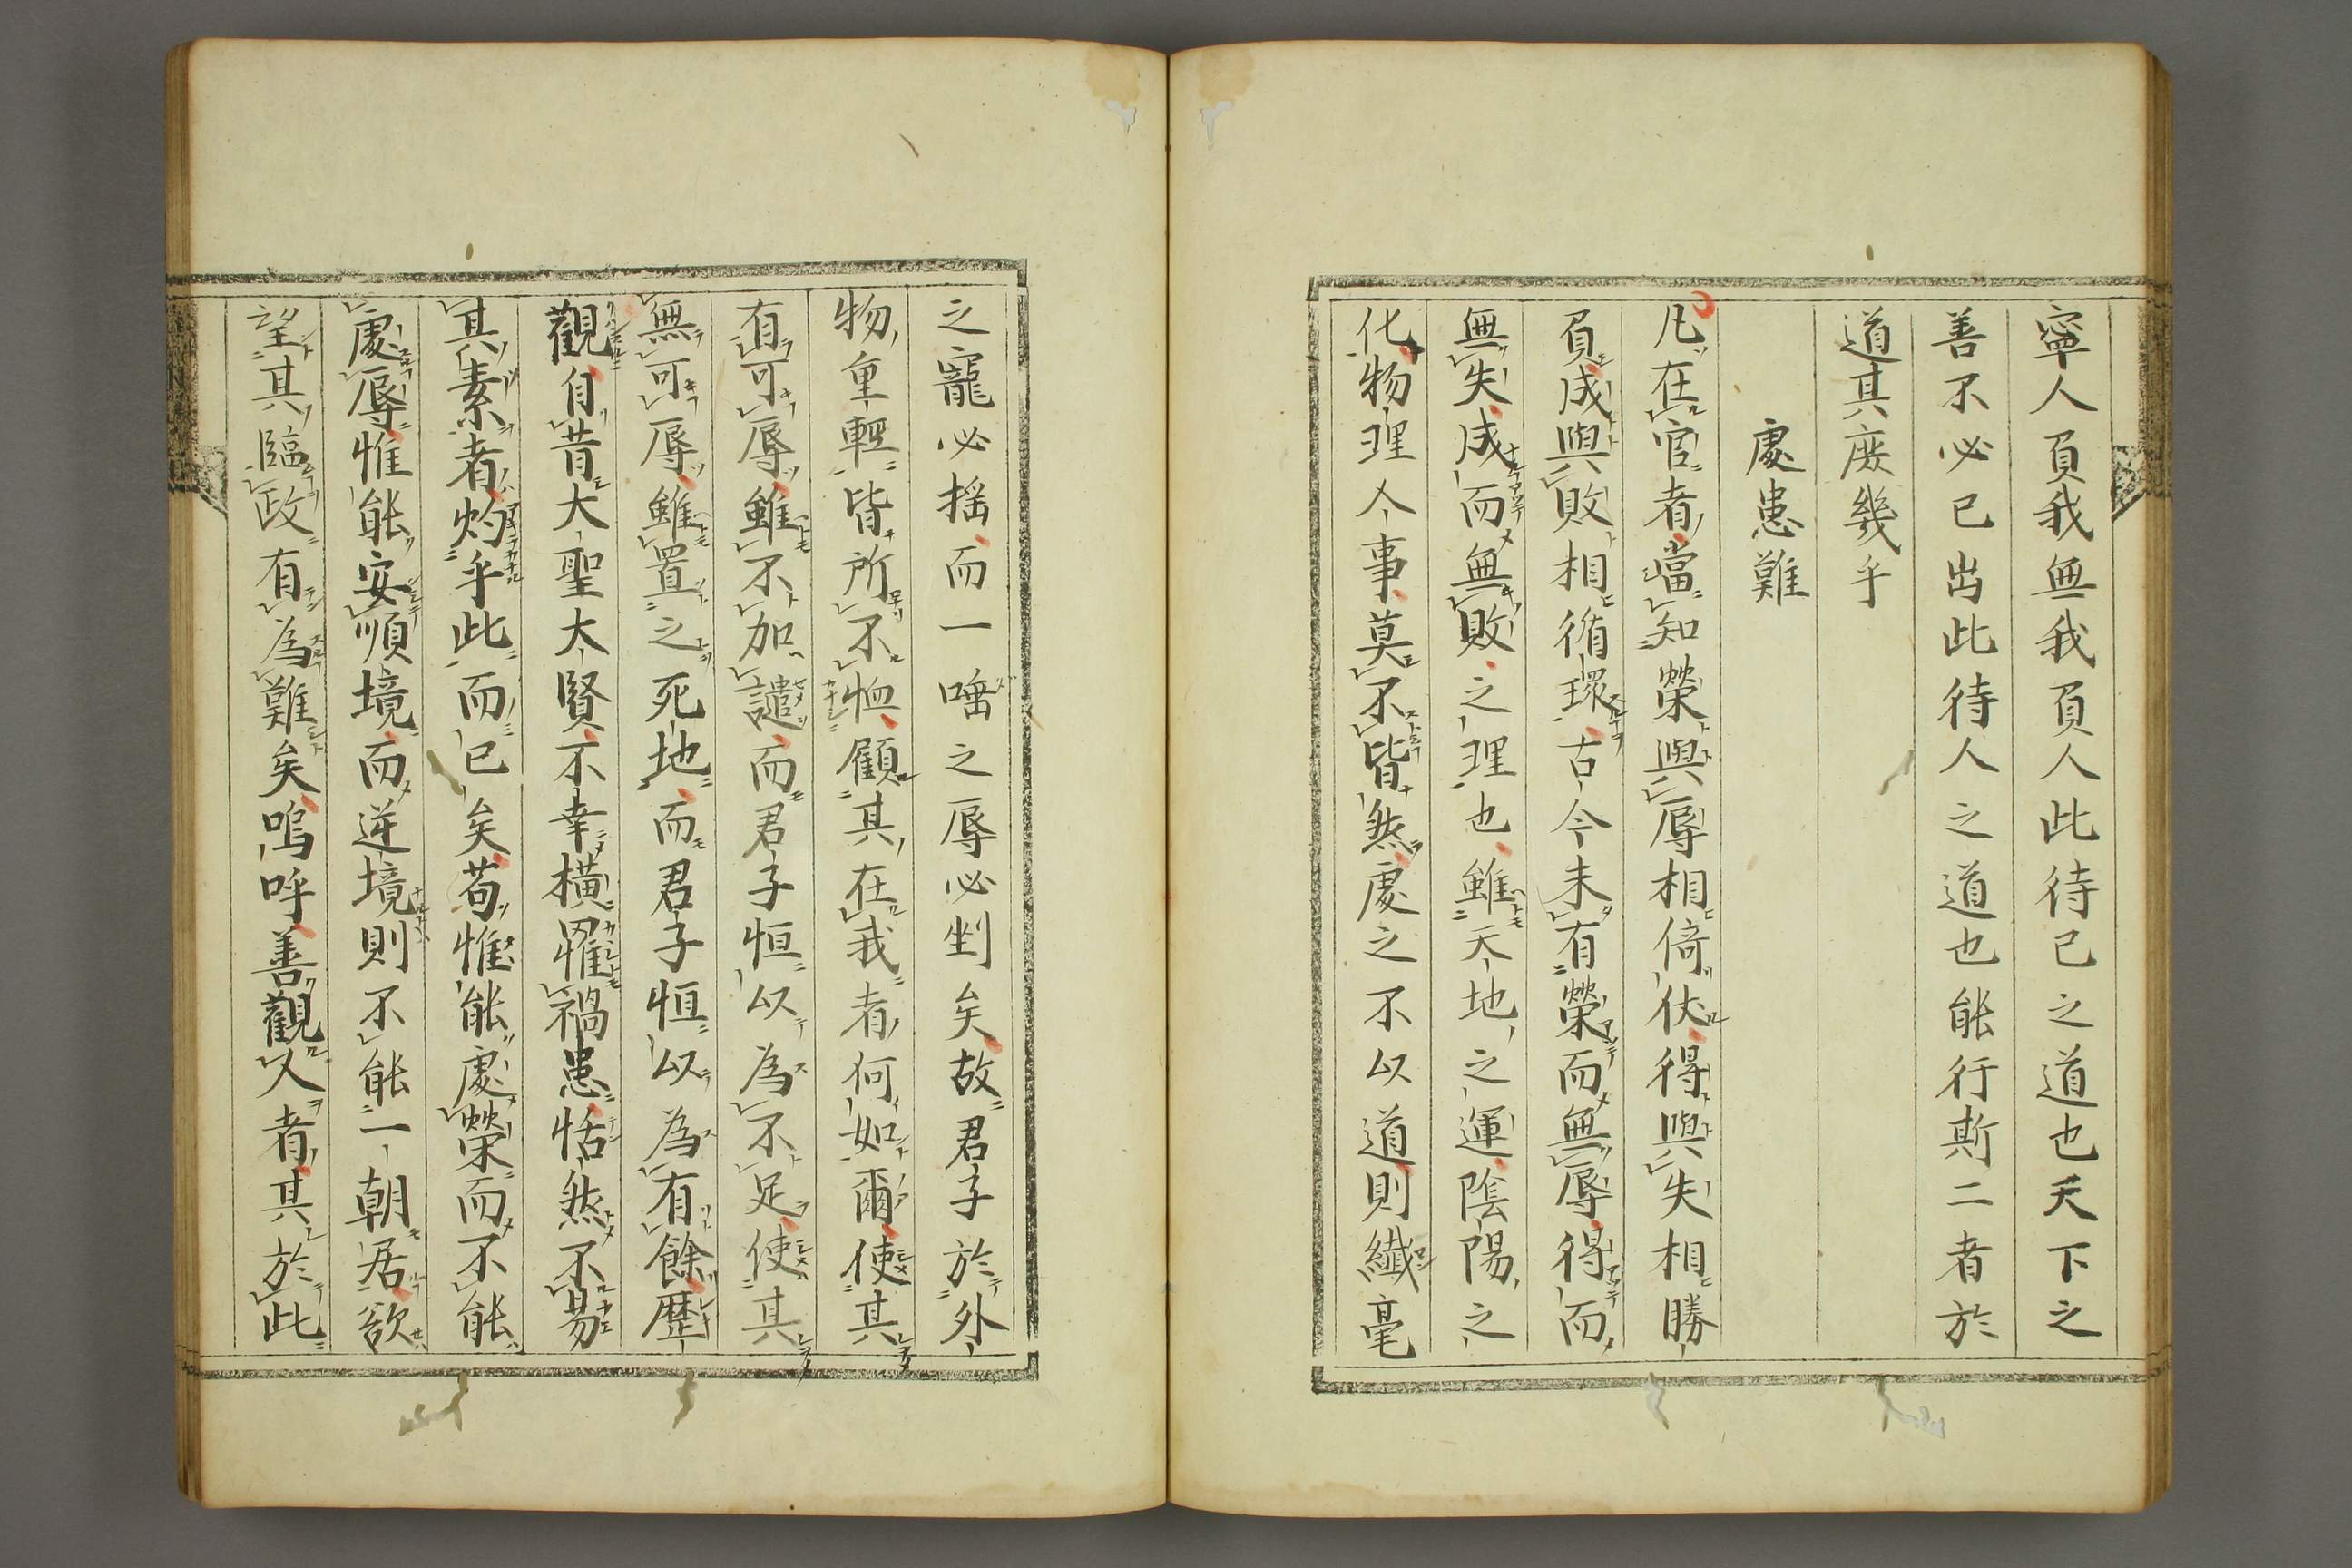 寧人負我無我負人此待己之道也天下之
善不必己出此待人之道也能行斯二者於
道其庶幾乎
處患難
凡在官者當知榮與辱相倚伏得與失相勝
負成與敗相循環古今未有榮而無辱得而
無失成而無敗之理也雖天地之運陰陽之
化物理人事莫不皆然處之不以道則纖毫
之寵必搖而一唾之辱必剉矣故君子於外
物重輕皆所不恤顧其在我者何如爾使其
有可辱雖不加譴而君子恒以為不足使其
無可辱雖置之死地而君子恒以為有餘歷
觀自昔大聖大賢不幸橫罹禍患恬然不易
其素者灼乎此而已矣苟惟能處榮而不能
處辱惟能安順境而逆境則不能一朝居欲
望其臨政有為難矣嗚呼善觀人者其於此